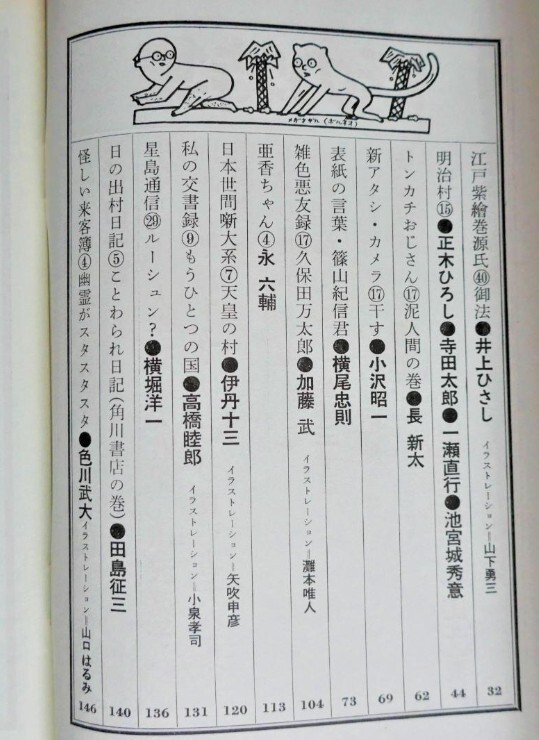 メガネザル(ボルネオ)
江戸紫繪巻源氏㊵御法●井上ひさし イラストレーション=山下勇三 32
明治村⑮●正木ひろし●寺田太郎●一瀬直行●池宮城秀意 44
トンカチおじさん⑰泥人間の巻●長 新太 62
新アタシ・カメラ⑰干す●小沢昭一 69
表紙の言葉・篠山紀信君●横尾忠則 73
雑色悪友録⑰久保田万太郎●加藤 武 イラストレーション=灘本唯人 104
亜香ちゃん④永 六輔 113
日本世間噺大系⑦天皇の村●伊丹十三 イラストレーション=矢吹申彦 120
私の交書録⑨もうひとつの国●高橋睦郎 イラストレーション=小泉孝司 131
星島通信㉙ルーシュン?●横堀洋一 136
日の出村日記⑤ことわられ日記(角川書店の巻)●田島征三 140
怪しい来客簿④幽霊がスタスタスタ●色川武大 イラストレーション=山口はるみ 146